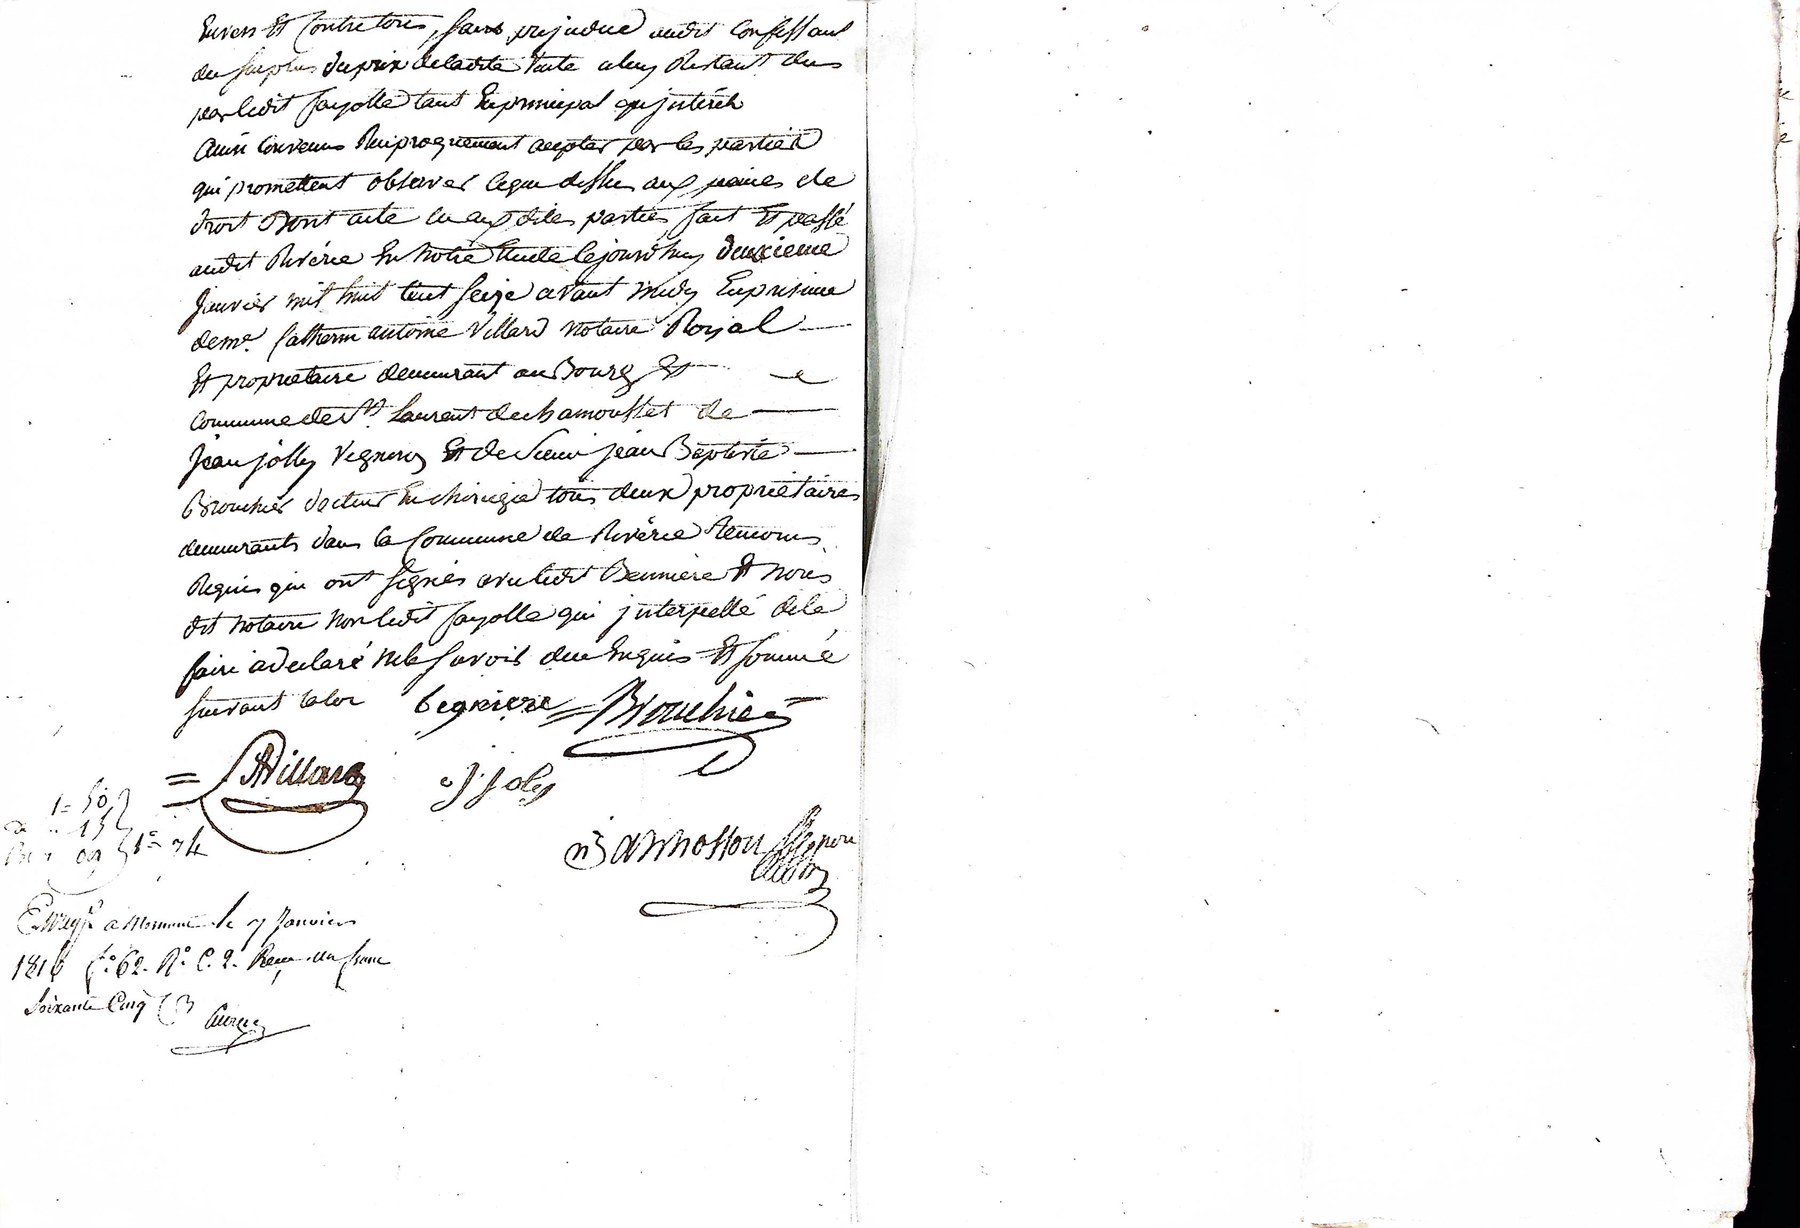 Envers Et Contre tous, sans prejudice audit Confessant
du surplus du prix de ladite Vente a luy Restant du
par ledit fayolle tant En principal qu'jnterêt
Ainsi Convenus Reciproquement accepter par les parties
qui promettent observer ceque dessus aux peines de
droit Dont acte lu aux dites parties, fait Et passé
audit Rivérie En Notre Etude Cejourd'huy deuxieme
Janvier mil huit Cent seize avant midy En presence
de me. Catherin antoine Villard notaire Royal
Et proprietaire demeurant au Bourg Et
Commune de St. Laurent de chamousset de
Jean jolly Vigneron Et de sieur jean Baptiste
Brouchier docteur En chirurgie tous deux propriétaires
demeurants dans la Commune de Rivérie temoins
Requis qui ont signés avec ledit Et Nous
dit Notaire Non ledit fayolle qui jnterpellé dele
faire a declaré nele savoir dece Enquis Et sommé
suivant laloi Brouchier
Villard J joly
1 = 50
15
09 1 = 74
Enregtré a Mornant le 7 Janvier
1816 fo. 62. Ro. C. 2. Reçu un franc
soixante Cinq C